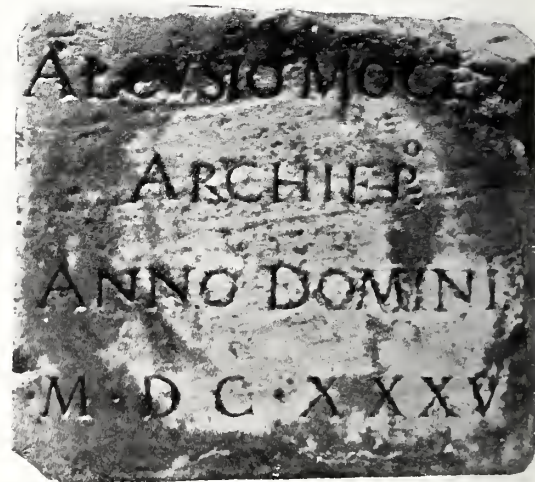 ARCHIEPº
ANNO DOMINI
·M·D C·XXXV